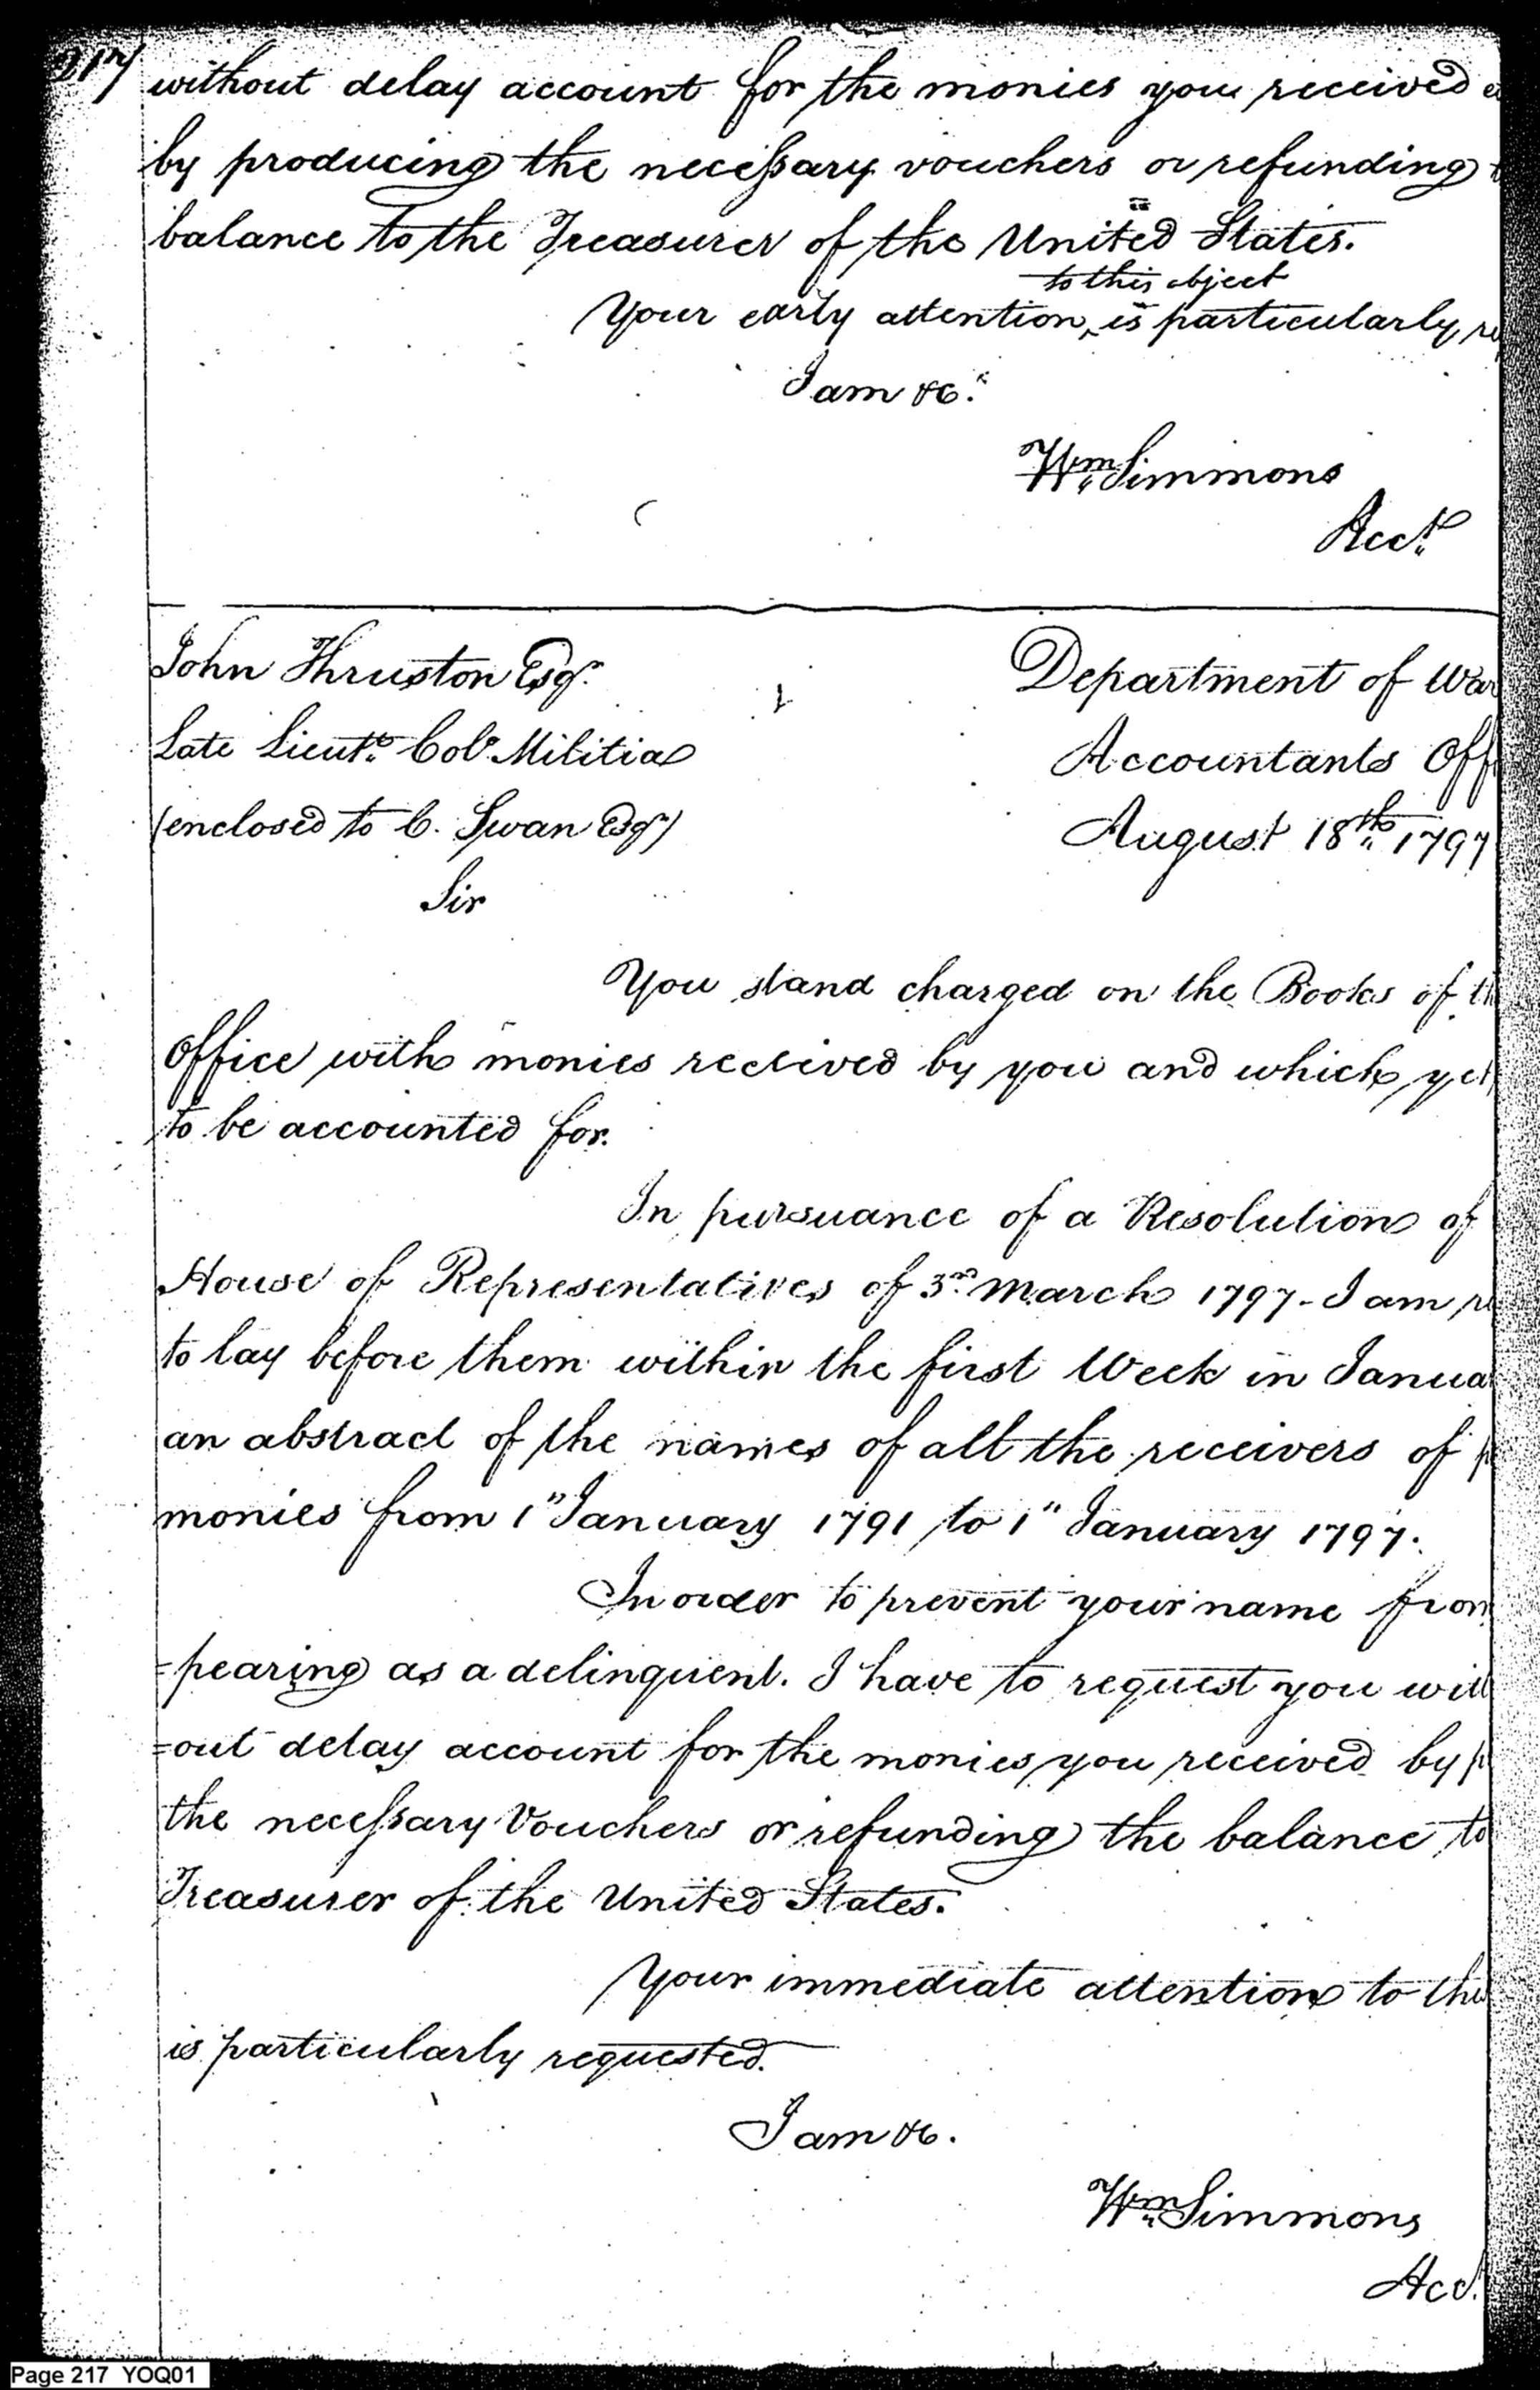 217
without delay account for the monies you received
by producing the necessary vouchers or refunding
balance to the Treasurer of the United States.
to this object
Your early attention ^ is particularly
I am &c.
Wm Simmons
Acct.
John Thruston Esqr.
Late Lieut. Col. Militia
(enclosed to C. Swan Esqr)
Department of War
Accountants Off
August 18th 1797
Sir
You stand charged on the Books of th
Office with monies received by you and which yet
to be accounted for.
In pursuance of a Resolution of
House of Representatives of 3rd March 1797 - I am re
to lay before them within the first Week in Janua
an abstract of the names of all the receivers of p
monies from 1" January 1791 to 1" January 1797.
In order to prevent your name from
=pearing as a delinquent. I have to request you will
=out delay account for the monies you received by p
the necessary Vouchers or refunding the balance to
Treasurer of the United States.
Your immediate attention to this
is particularly requested.
I am &c.
Wm Simmons
Acct.
Page 217 YOQ01